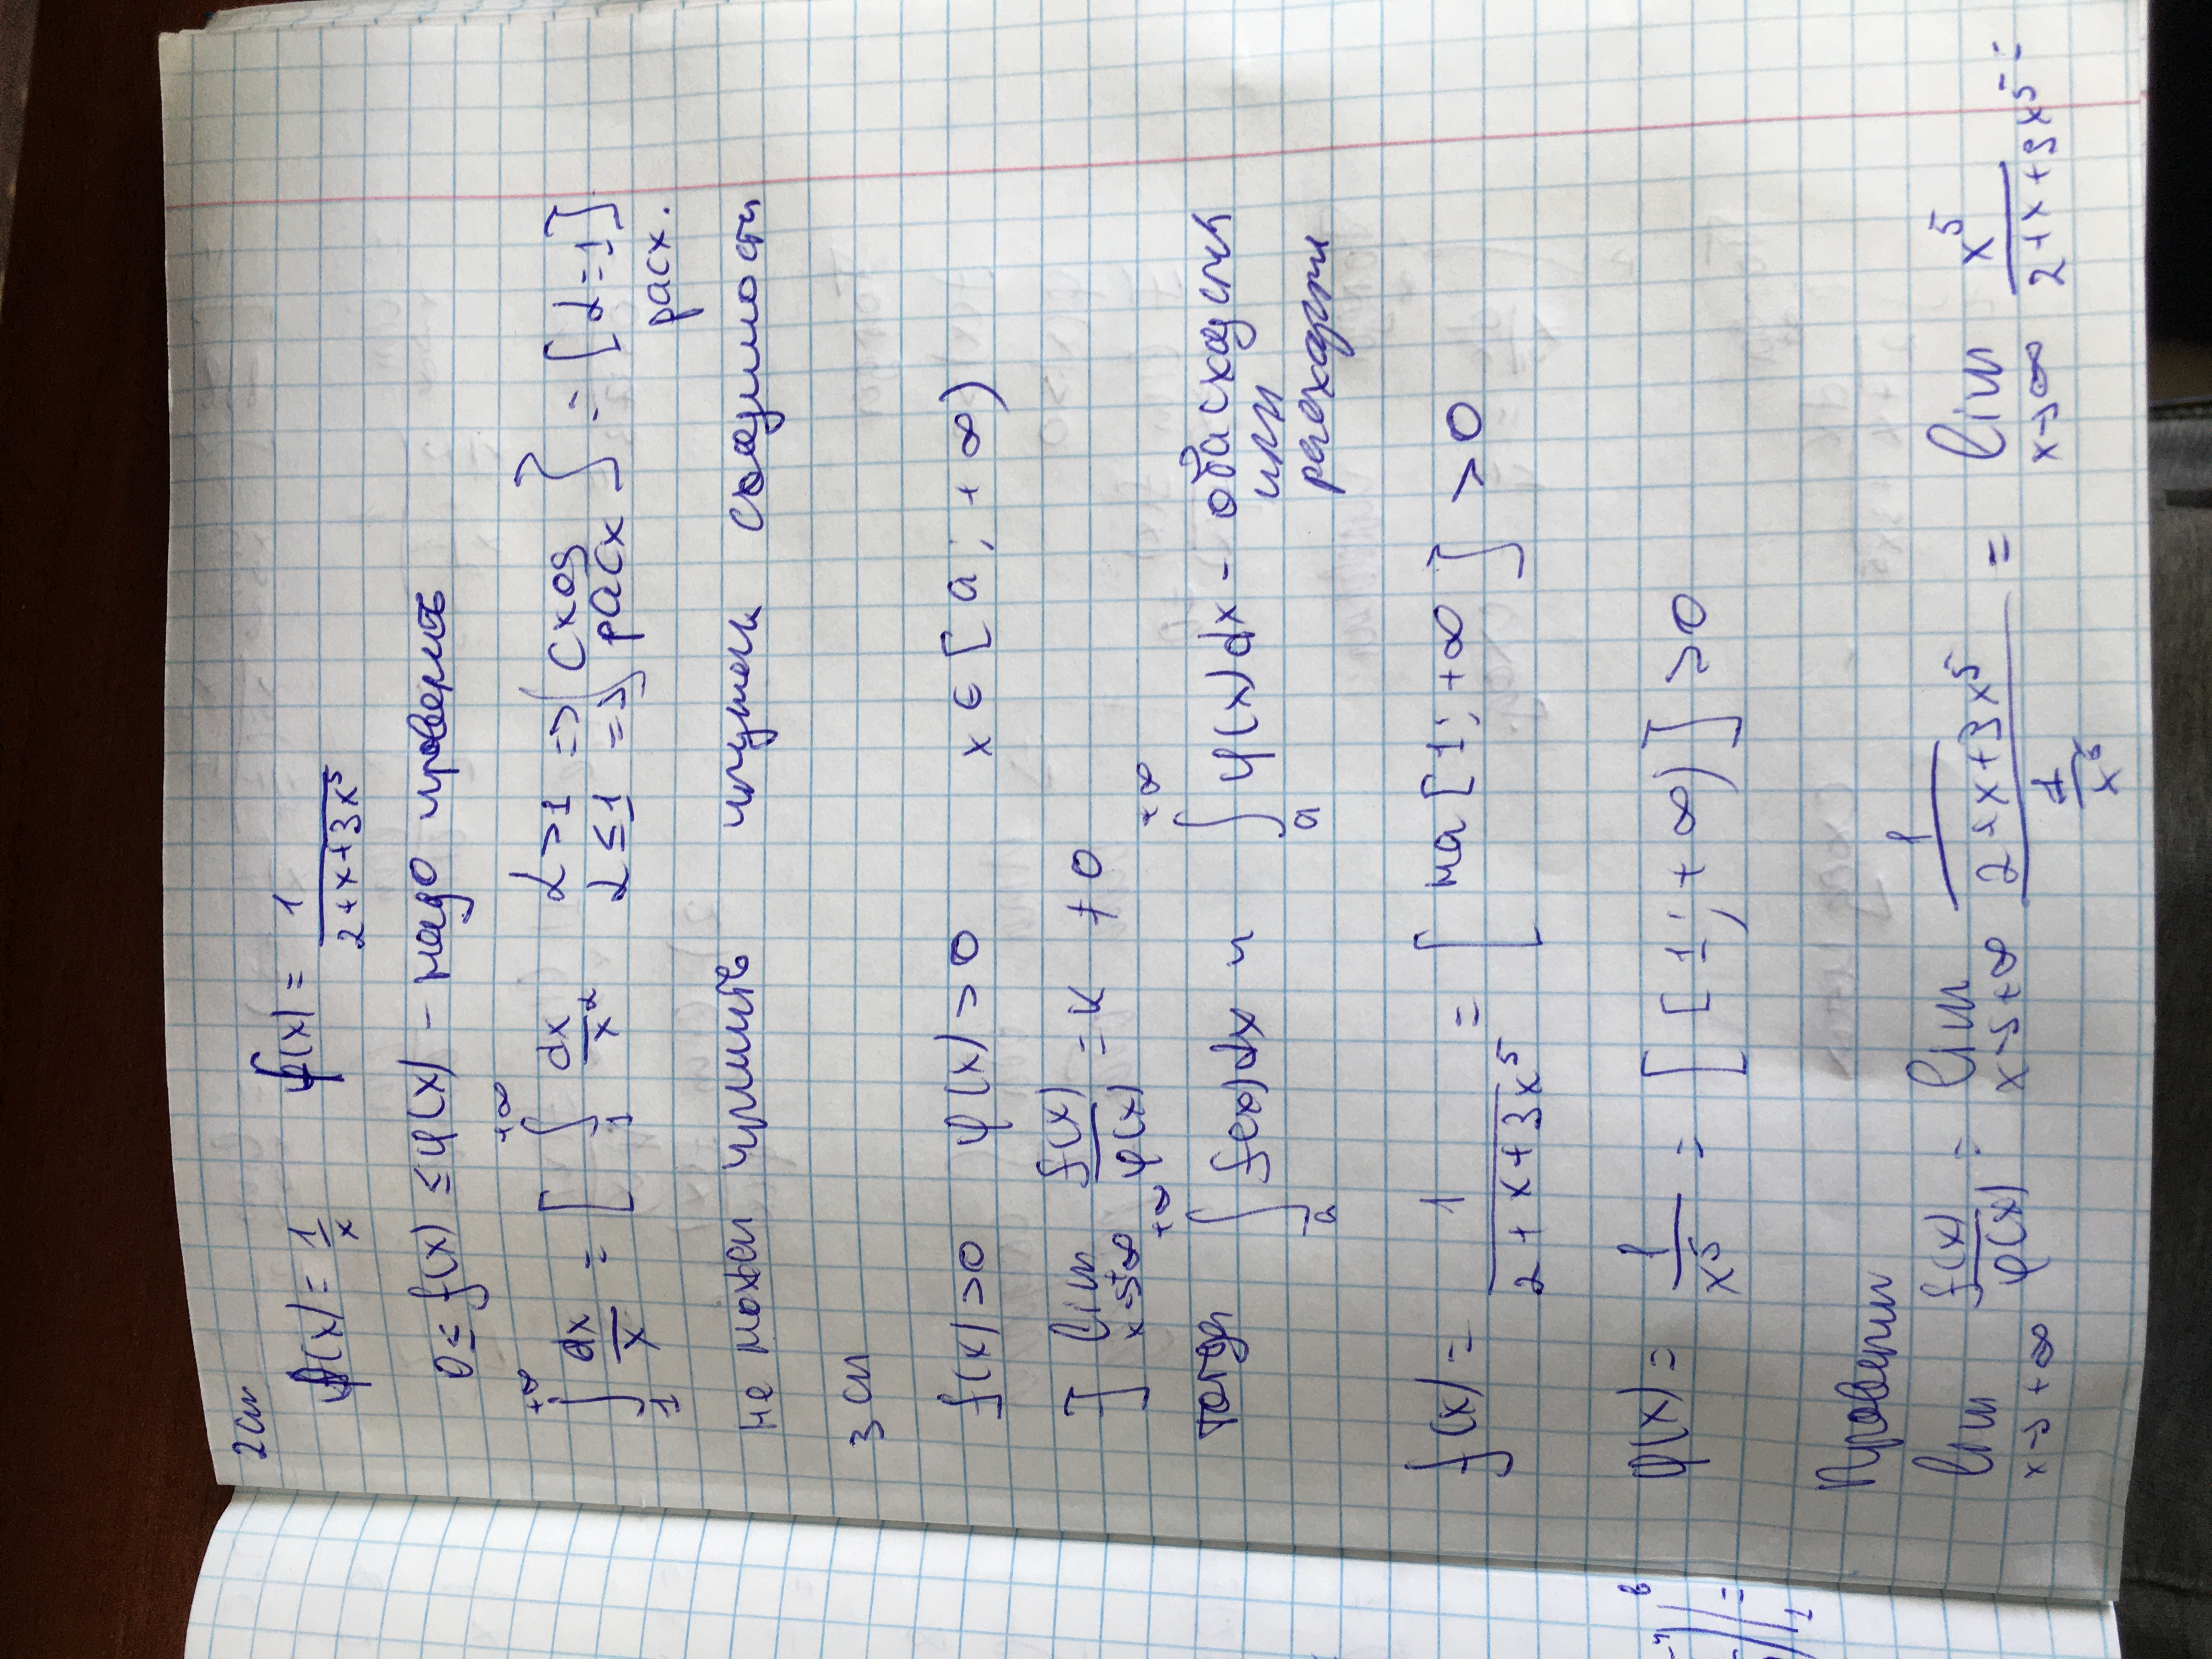 2 сп
φ(x) = 1/x f(x) = 1/(2+x+3x⁵)
0 ≤ f(x) ≤ φ(x) – надо проверить
∫₁^{+∞} dx/x = [ ∫₁^{+∞} dx/x^α α>1 => сход α≤1 => расх ] = [α=1] расх.
не можем признак сходимости
3 сп
f(x) >0 φ(x) >0 x ∈ [a; +∞)
∃ lim_{x→+∞} f(x)/φ(x) = K ≠ 0
тогда ∫ₐ^{+∞} f(x)dx и ∫ₐ^{+∞} φ(x)dx – оба сходятся
или
расходятся
f(x) = 1/(2+x+3x⁵) = [ на [1; +∞ ] >0
φ(x) = 1/x⁵ = [ [1; +∞) ] >0
Проверим
lim_{x→+∞} f(x)/φ(x) = lim_{x→+∞} (1/(2+x+3x⁵))/(1/x⁵) = lim_{x→∞} x⁵/(2+x+3x⁵) =